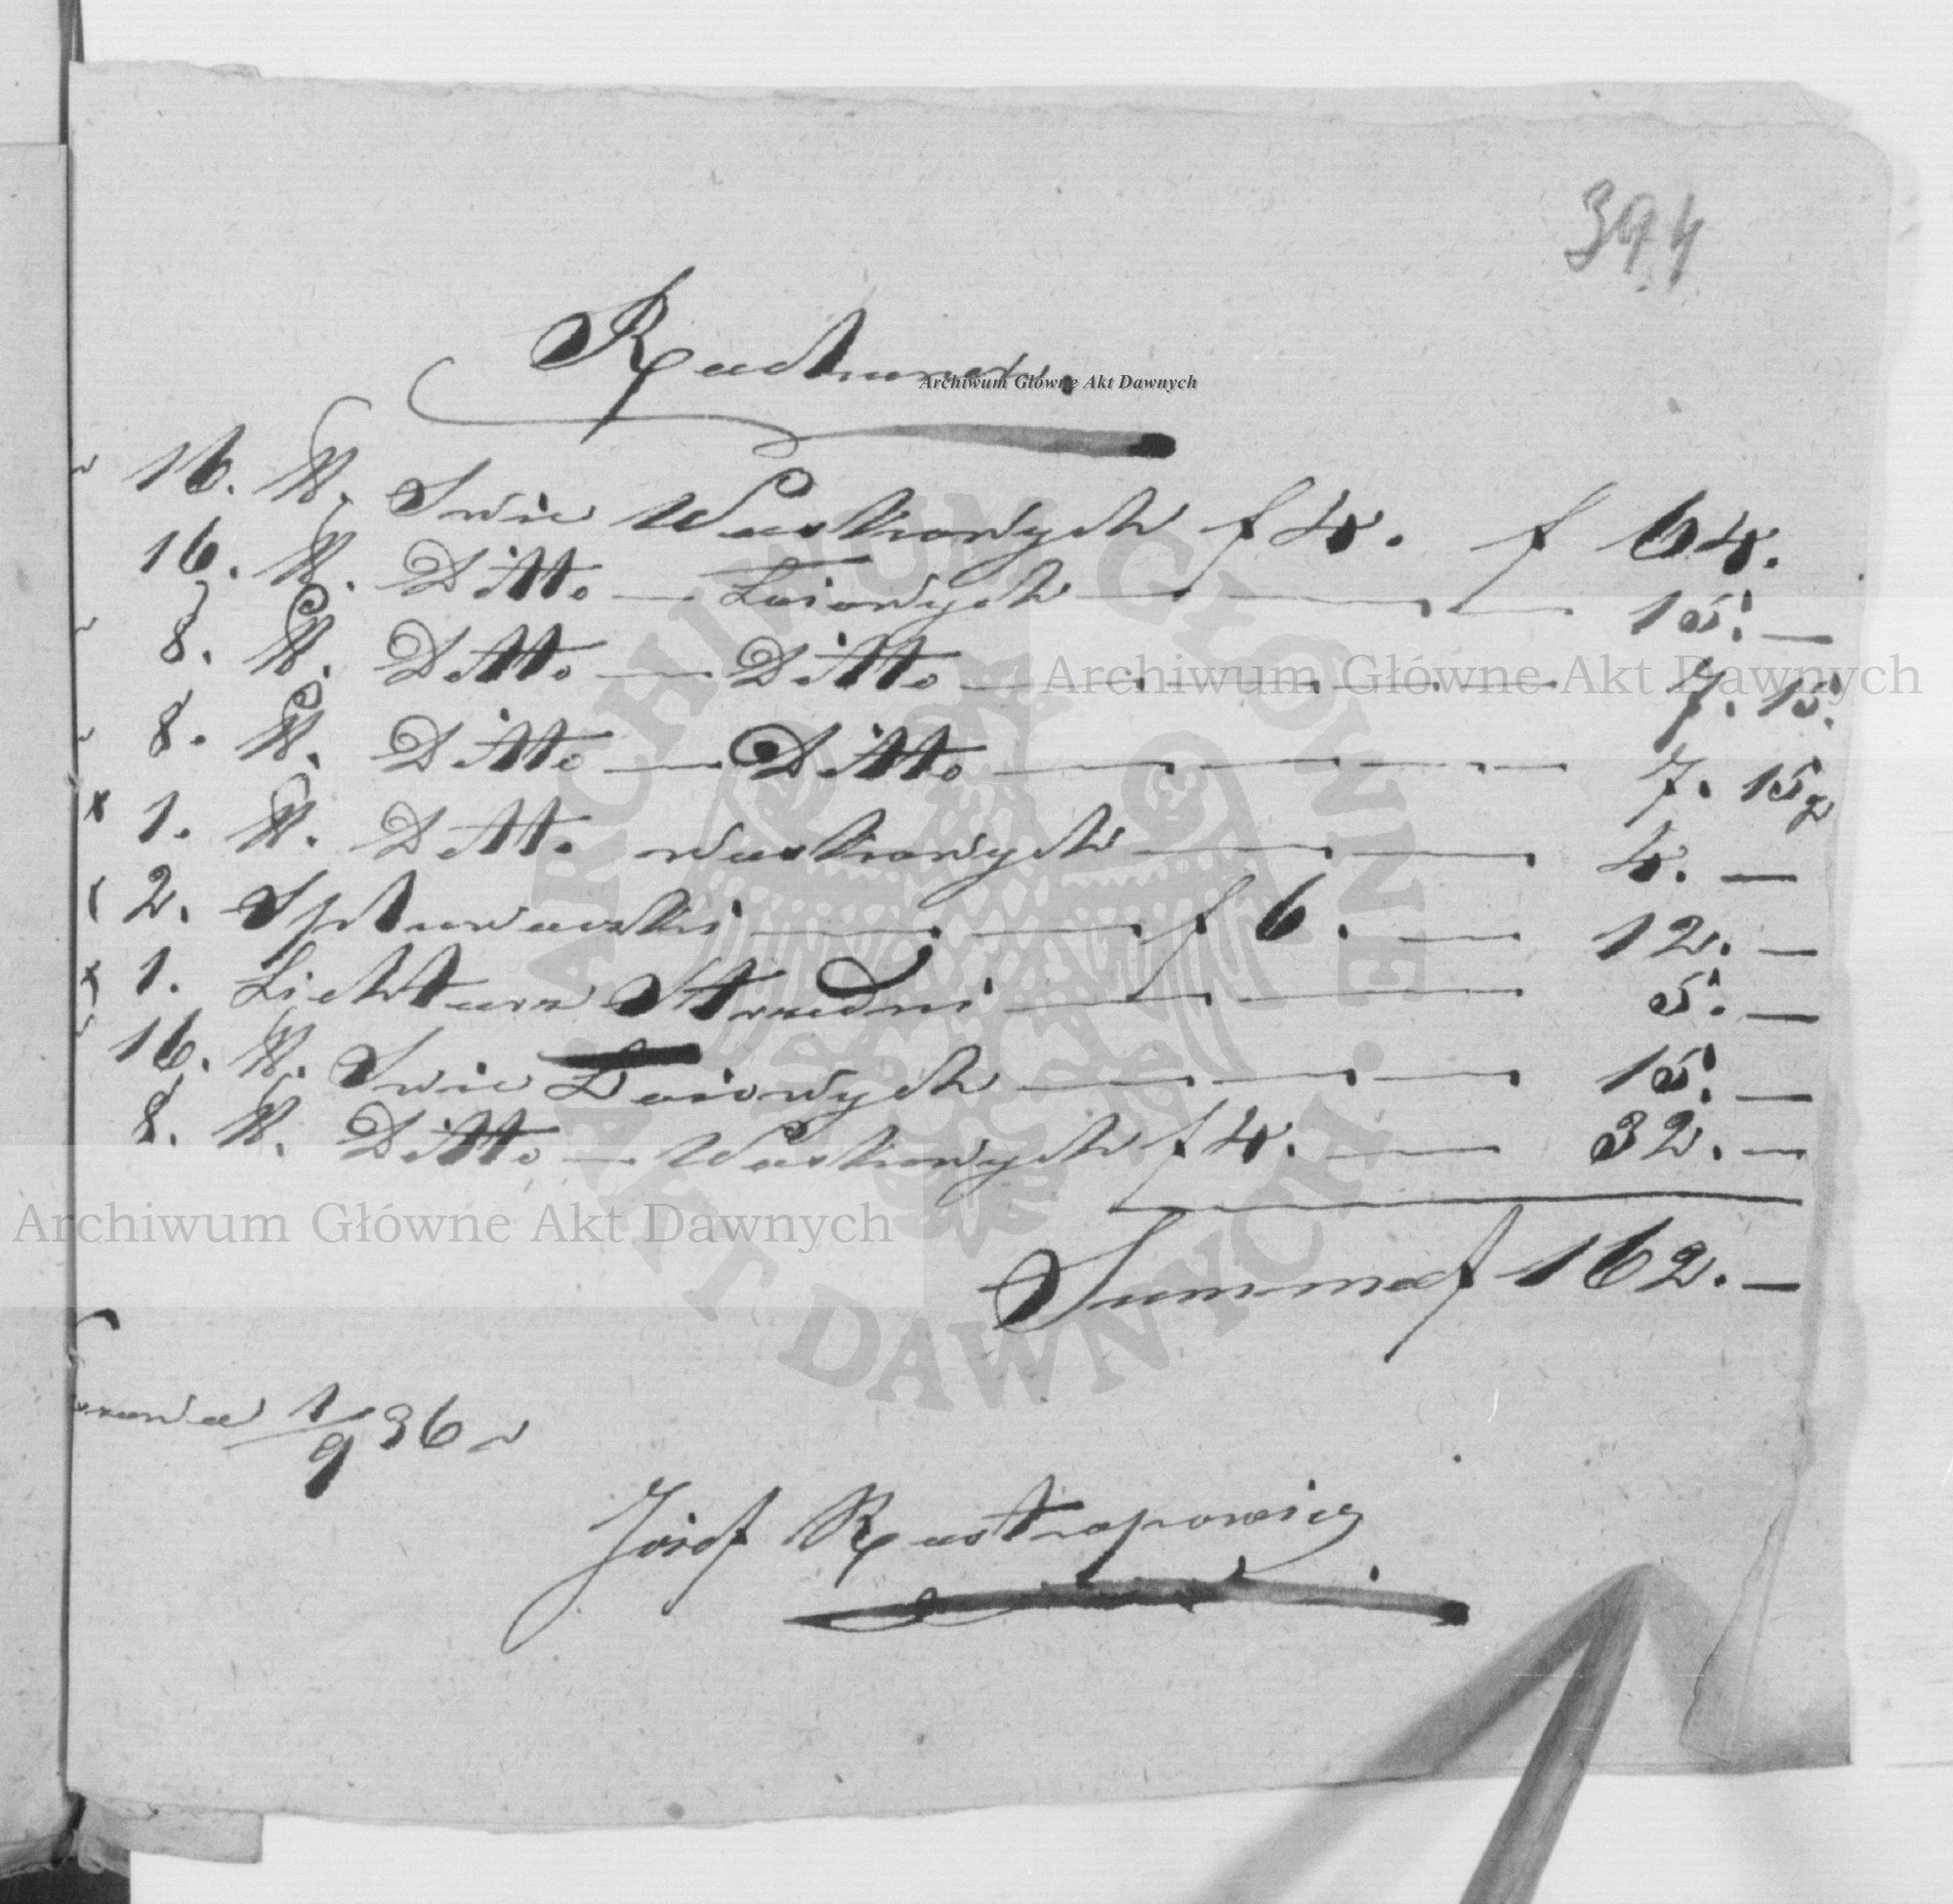 394
Rachunek.
16. ℔. Swic Woskowych f 4. f 64.
16. ℔. Ditto — Loiowych — 15. —
8. ℔. Ditto — Ditto — 7. 15.
8. ℔. Ditto — Ditto — 7. 15 g
x 1. ℔. Ditto woskowych — 4. —
2. Spluwaczki — f 6. — 12. —
x 1. Lichtarz Strzedni — 5. —
16. ℔. Swic Loiowych — 15. —
8. ℔. Ditto — Woskowych f 4. — 32. —
Summa f 162. —
1/9 36
Józef Rostropowicz
Archiwum Główne Akt Dawnych
Archiwum Główne Akt Dawnych
Archiwum Główne Akt Dawnych
ARCHIWUM GŁÓWNE AKT DAWNYCH